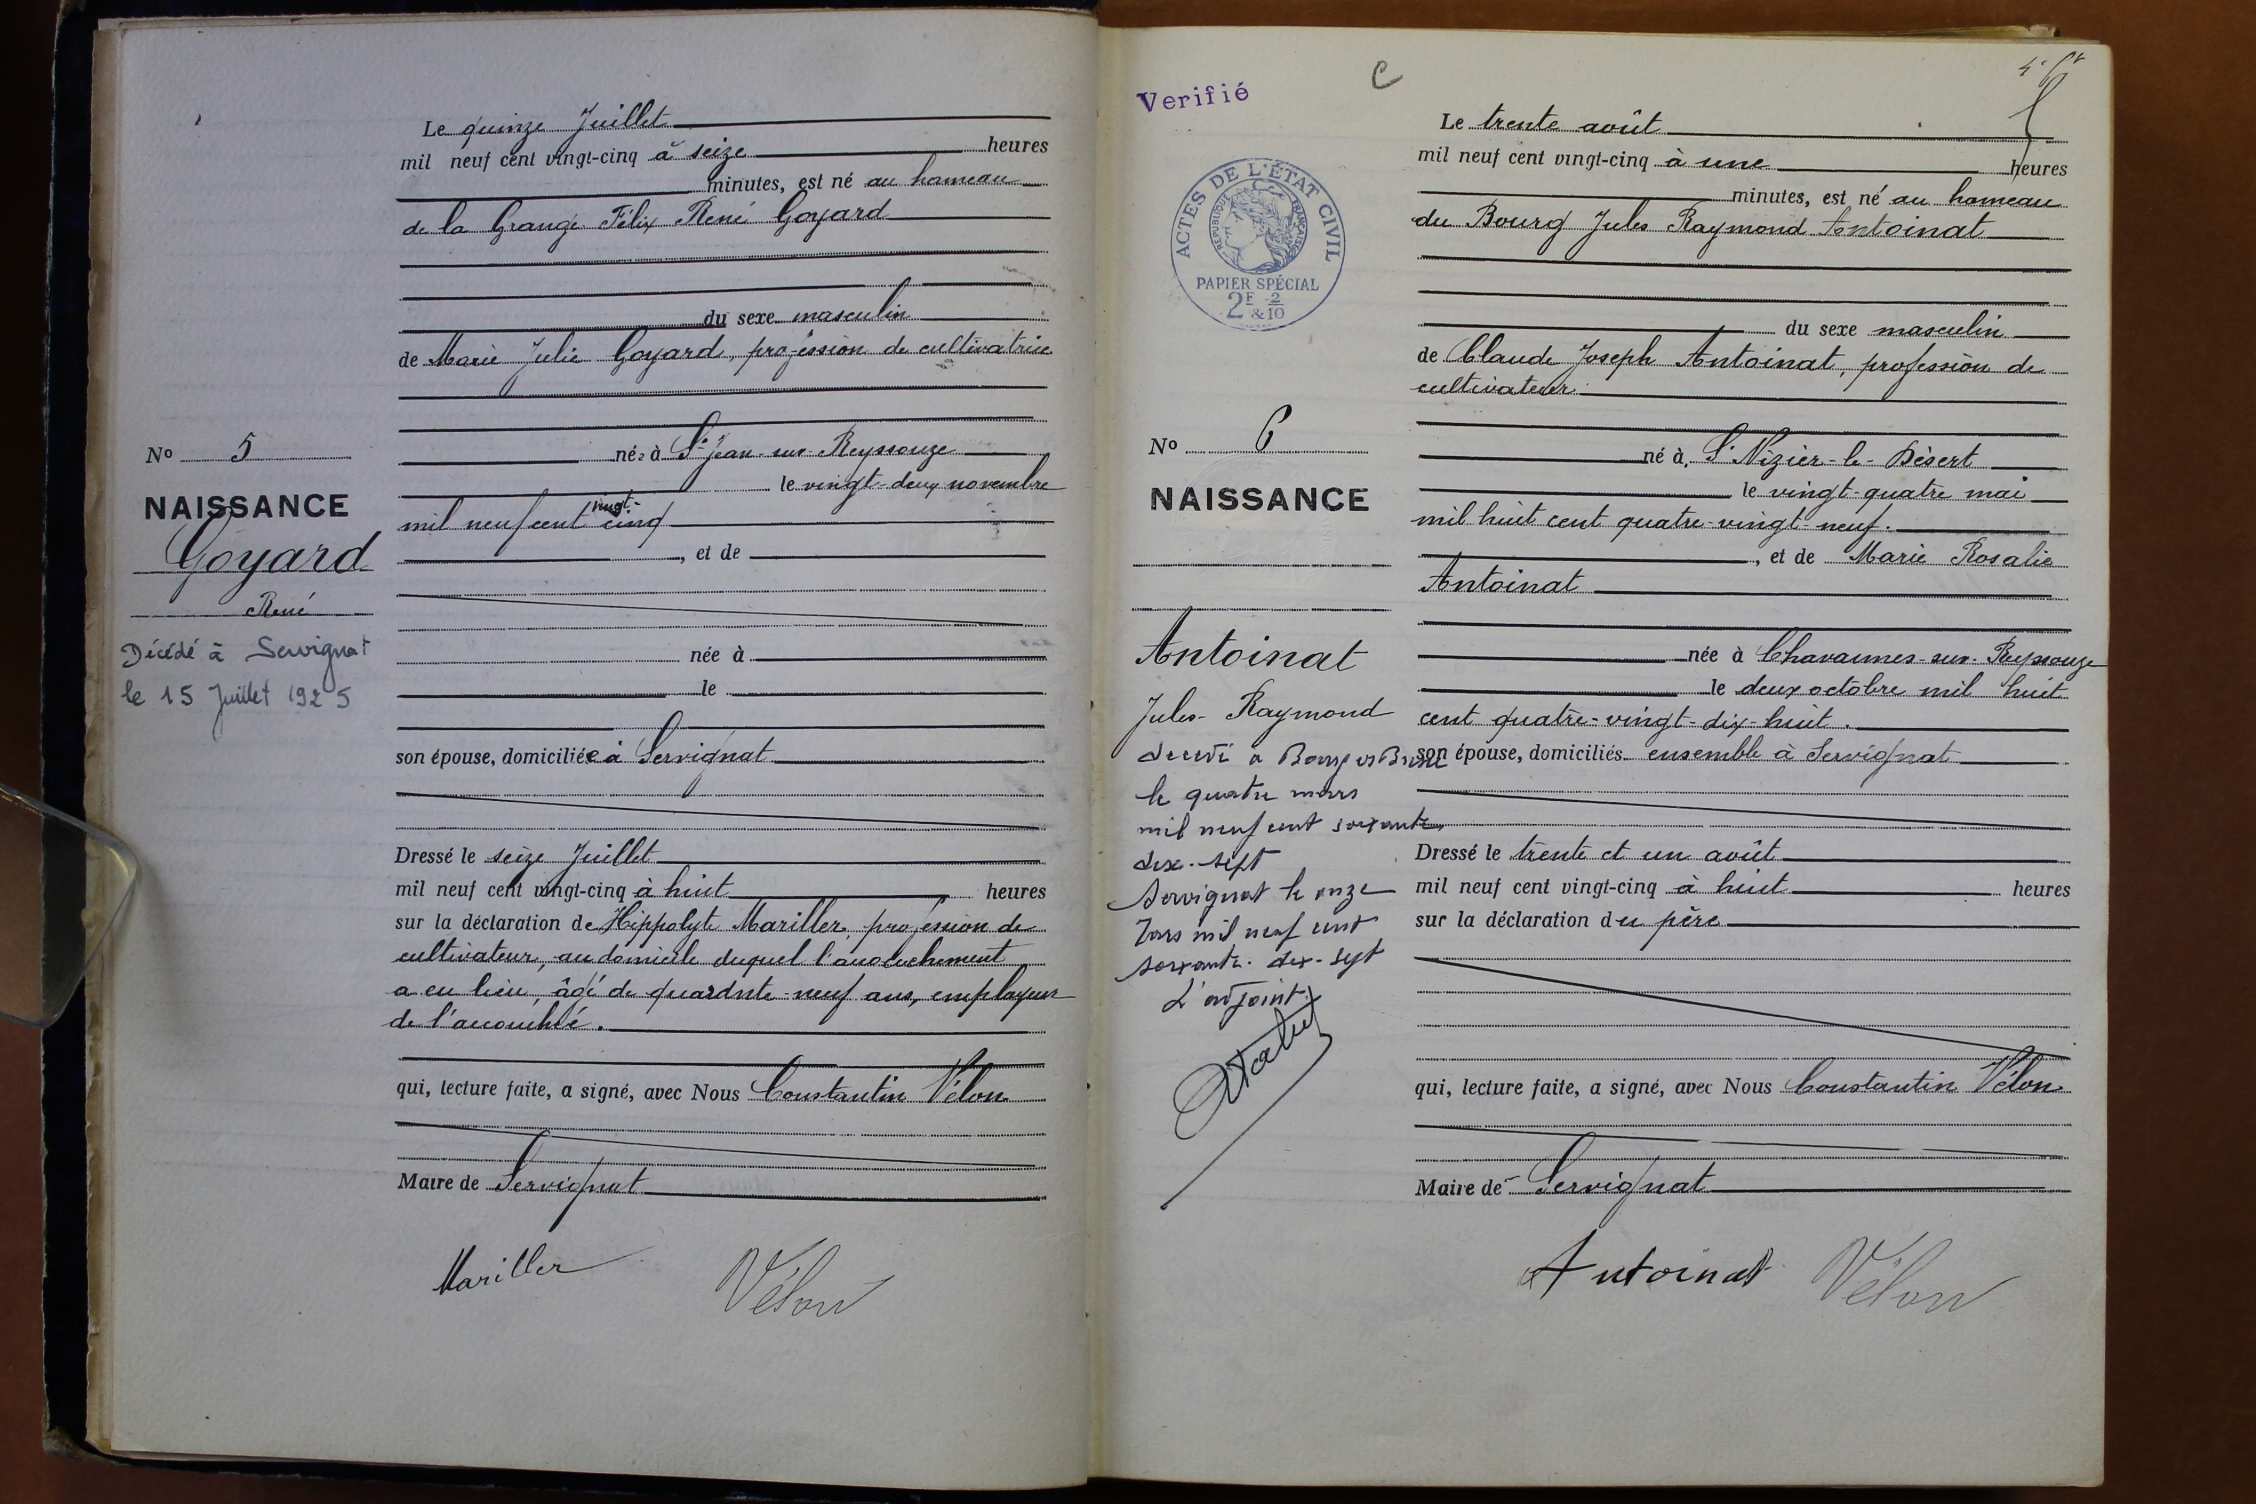 Le quinze Juillet
mil neuf cent vingt-cinq à seize heures
minutes, est né au hameau
de la Grange Félix René Goyard
du sexe masculin
de Marie Julie Goyard, profession de cultivatrice
née à St Jean-sur-Reyssouze
le vingt-deux novembre
vingt-
mil neuf cent cinq
, et de
née à
le
son épouse, domiciliée à Servignat
Dressé le seize Juillet
mil neuf cent vingt-cinq à huit heures
sur la déclaration de Hippolyte Mariller, profession de
cultivateur, au domicile duquel l'accouchement
a eu lieu, âgé de quarante-neuf ans, employeur
de l'accouchée.
qui, lecture faite, a signé, avec Nous Constantin Vélon
Maire de Servignat
Mariller Vélon
No 5
NAISSANCE
Goyard
René
Décédé à Servignat
le 15 Juillet 1925
Verifié
C
ACTES DE L'ÉTAT CIVIL
RÉPUBLIQUE FRANÇAISE
PAPIER SPÉCIAL
2F & 2/10
No 6
NAISSANCE
Antoinat
Jules-Raymond
décédé à Bourg en Bresse
le quatre mars
mil neuf cent soixante
dix-sept
Servignat le onze
Mars mil neuf cent
soixante-dix-sept
L'adjoint
Le trente août
mil neuf cent vingt-cinq à une heures
minutes, est né au hameau
du Bourg Jules Raymond Antoinat
du sexe masculin
de Claude Joseph Antoinat, profession de
cultivateur
né à St Nizier-le-Désert
le vingt-quatre mai
mil huit cent quatre-vingt-neuf.
, et de Marie Rosalie
Antoinat
née à Chavannes-sur-Reyssouze
le deux octobre mil huit
cent quatre-vingt-dix-huit.
son épouse, domiciliés ensemble à Servignat
Dressé le trente et un août
mil neuf cent vingt-cinq à huit heures
sur la déclaration du père
qui, lecture faite, a signé, avec Nous Constantin Vélon
Maire de Servignat
Antoinat Vélon